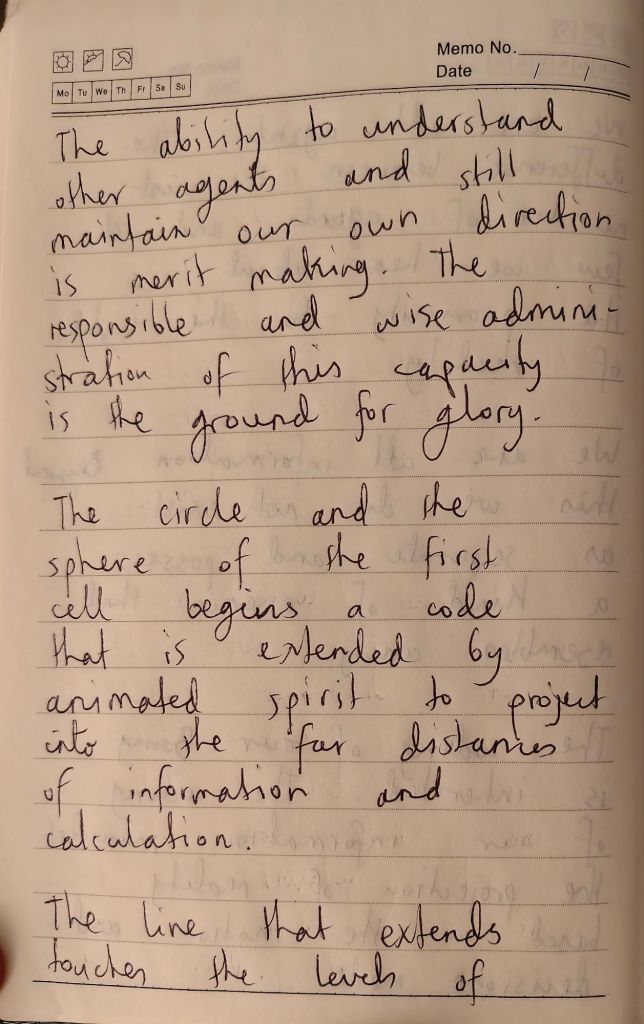 Memo No.
Date / /
Mo Tu We Th Fr Sa Su
The ability to understand
other agents and still
maintain our own direction
is merit making. The
responsible and wise admini-
stration of this capacity
is the ground for glory.
The circle and the
sphere of the first
cell begins a code
that is extended by
animated spirit to project
into the far distances
of information and
calculation.
The line that extends
touches the levels of